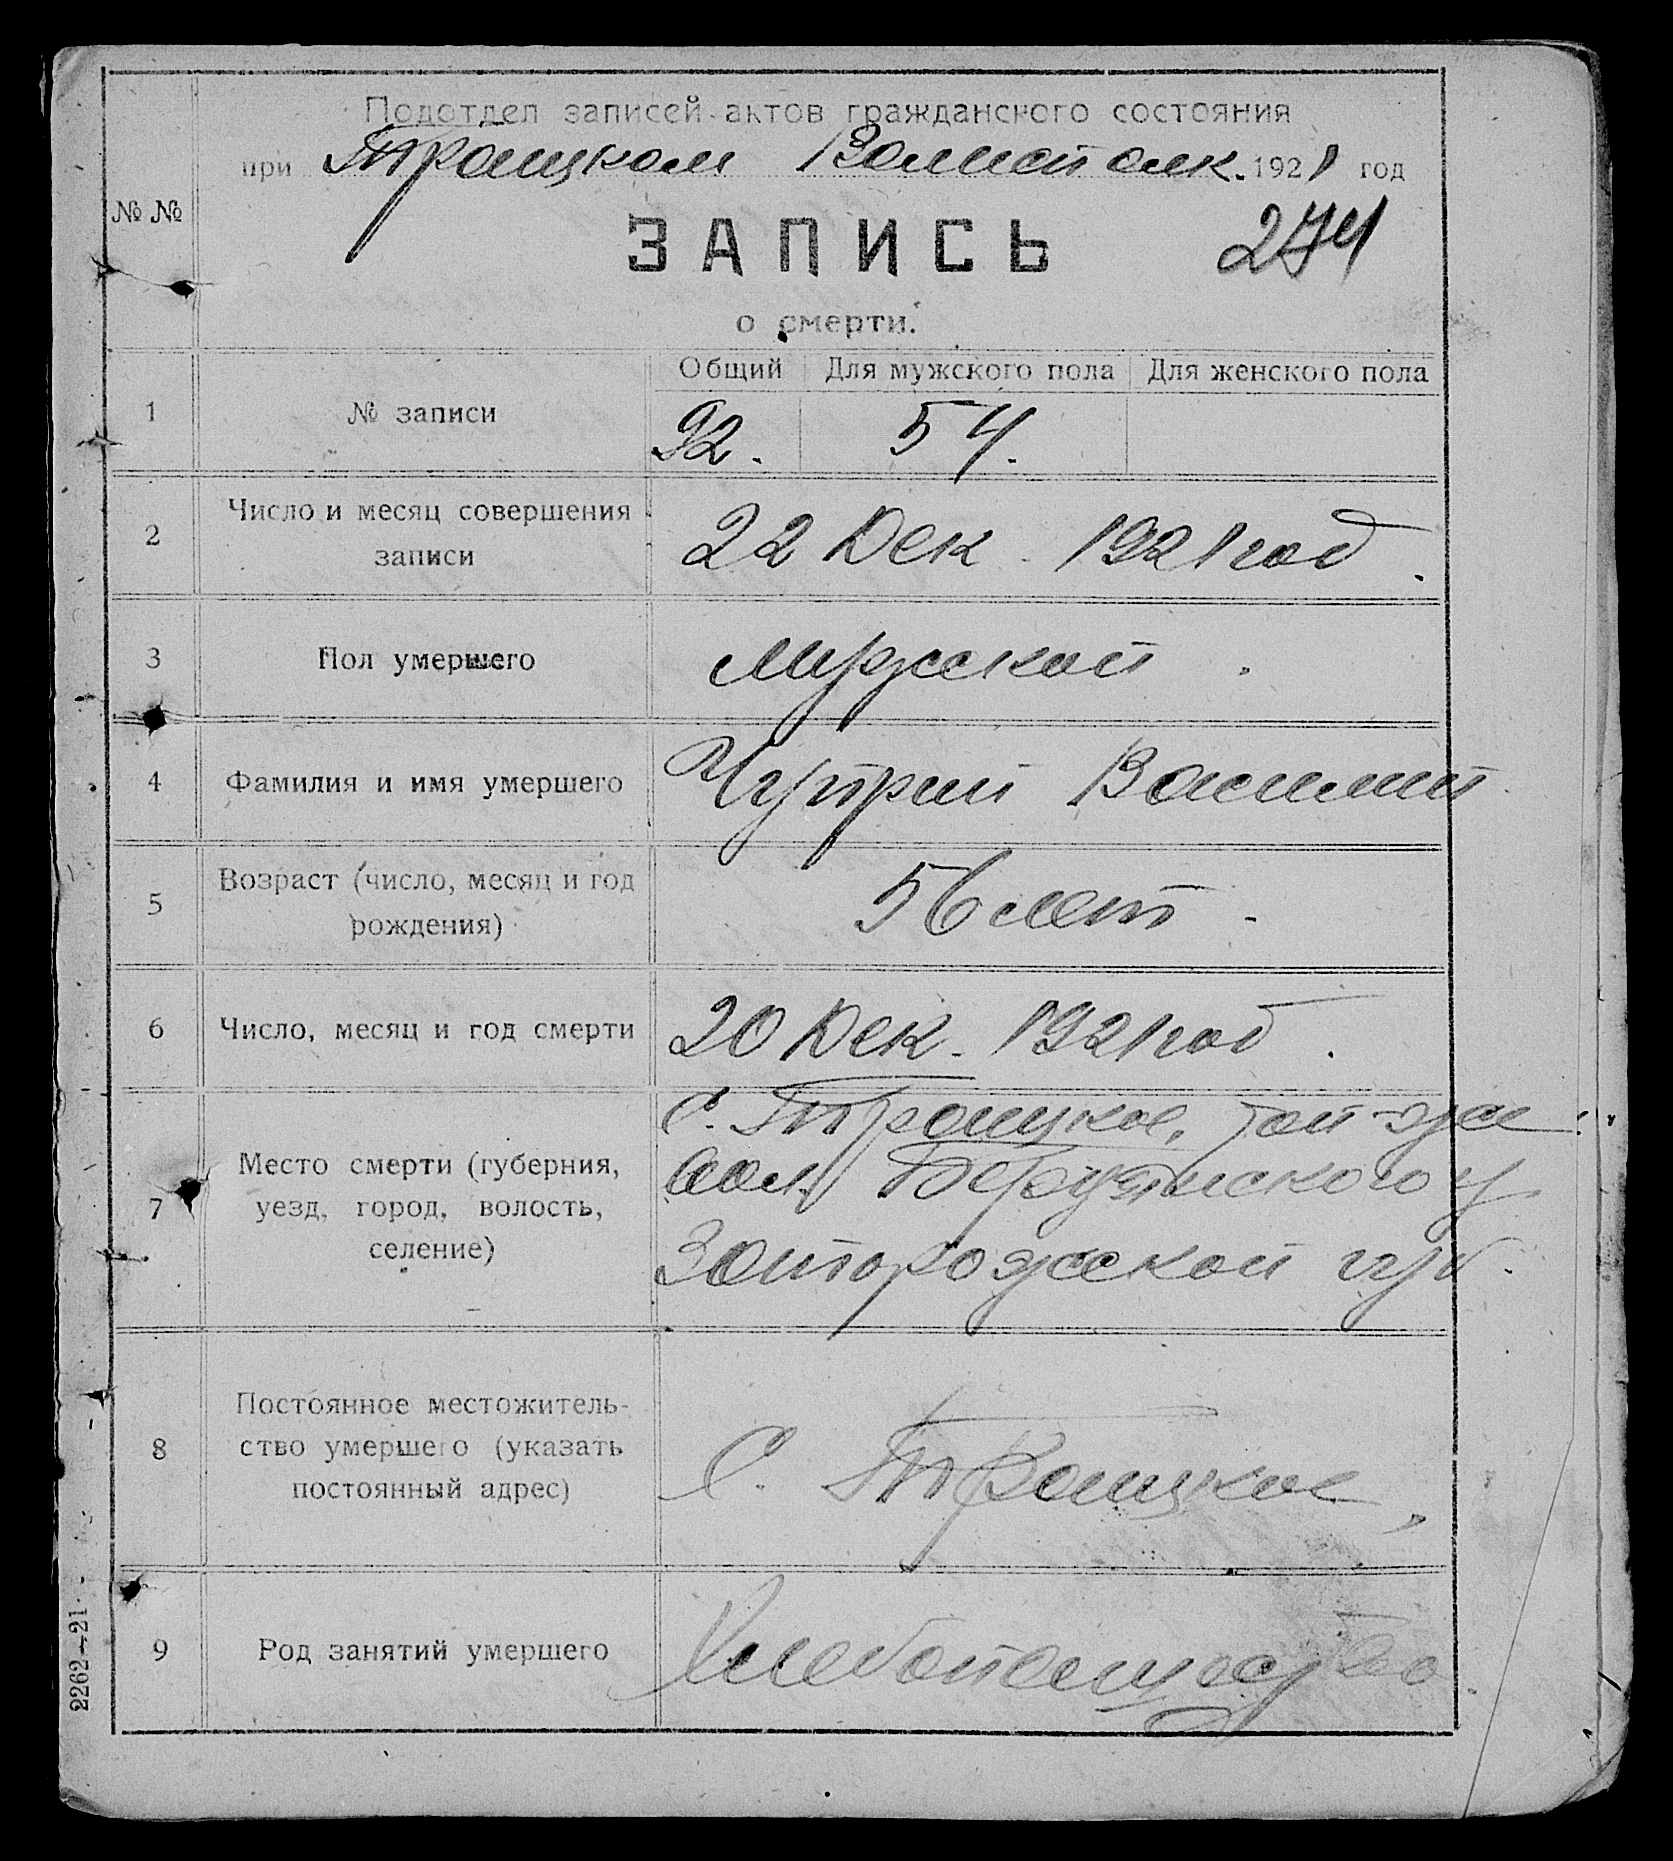 Подотдел записей актов гражданского состояния
при Троицком Волисполк. 1921 год
№ №
ЗАПИСЬ
274
о смерти.
Общий Для мужского пола Для женского пола
1 № записи 92. 54.
2 Число и месяц совершения
записи
22 Дек. 1921 год.
3 Пол умершего мужской.
4 Фамилия и имя умершего Чуприй Василий
5 Возраст (число, месяц и год
рождения)
56 лет.
6 Число, месяц и год смерти 20 Дек. 1921 год.
7 Место смерти (губерния,
уезд, город, волость,
селение)
С. Троицкое, той-же
вол. Бердянского у.
Запорожской губ.
8 Постоянное местожитель-
ство умершего (указать
постоянный адрес)
С. Троицкое,
9 Род занятий умершего Хлебопашество.
2262—21